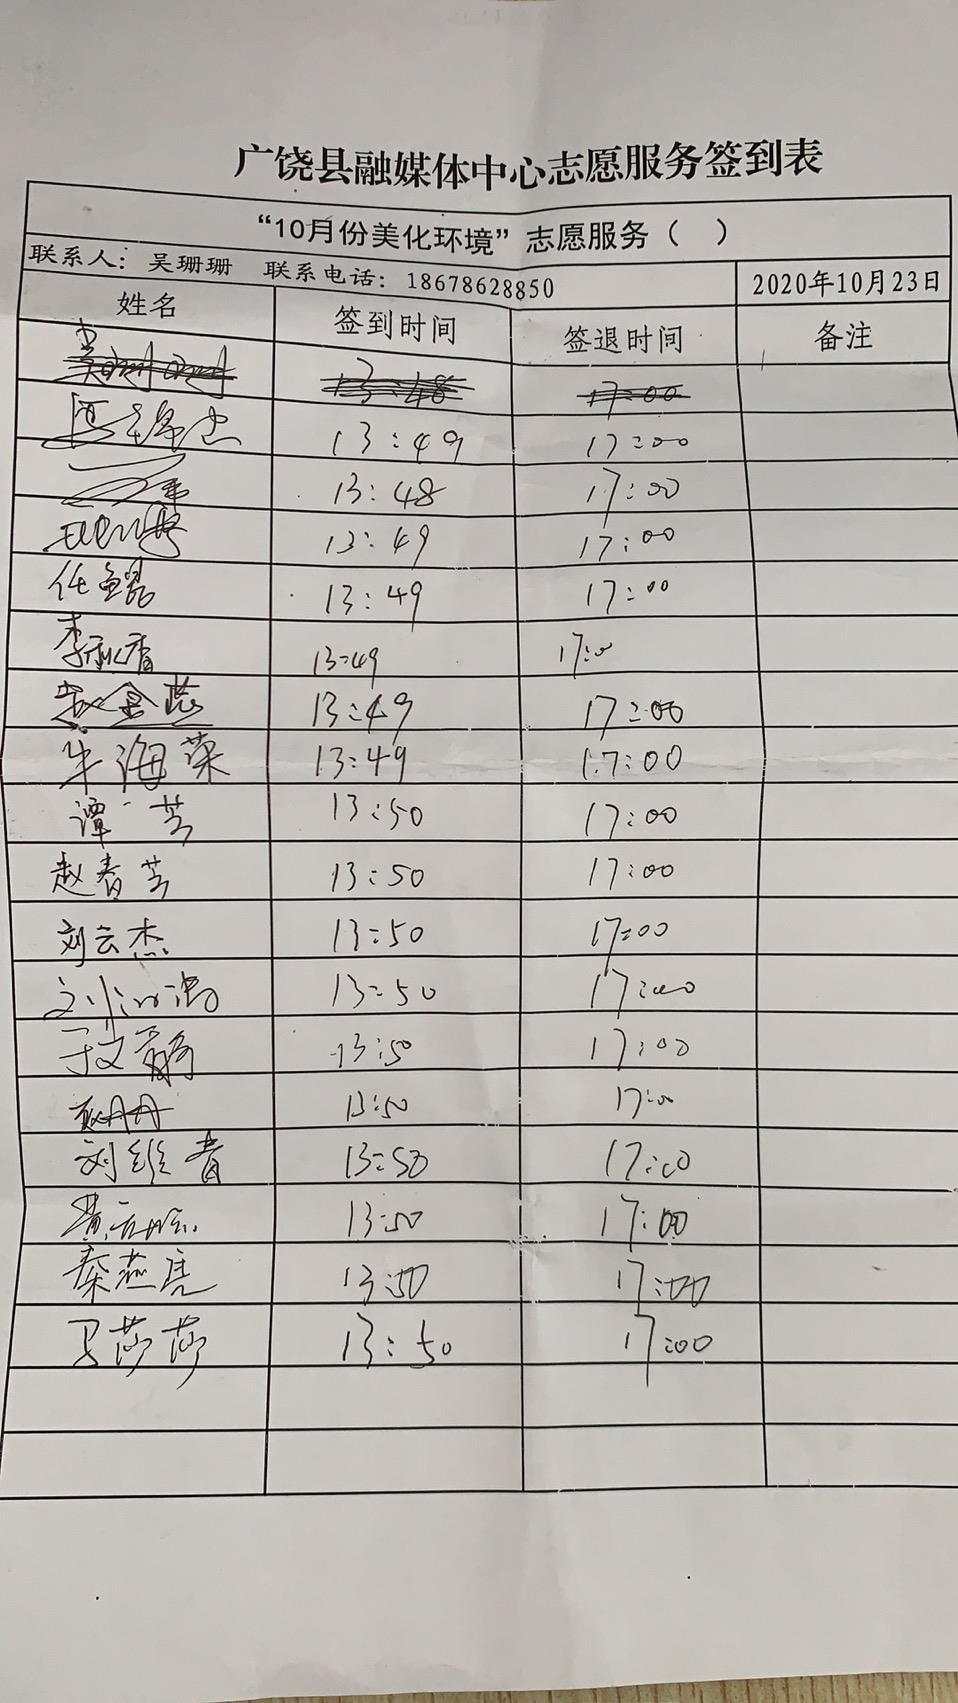 广饶县融媒体中心志愿服务签到表
“10月份美化环境”志愿服务（ ）
联系人：吴珊珊 联系电话：18678628850 2020年10月23日
姓名 签到时间 签退时间 备注
13:48 17:00
13:49 17:00
13:48 17:00
13:49 17:00
任 13:49 17:00
李 13:49 17:0
赵金 13:49 17:00
牛海荣 13:49 17:00
谭芸 13:50 17:00
赵春芸 13:50 17:00
刘云杰 13:50 17:00
刘 13:50 17:00
于文 13:50 17:00
13:50 17:00
刘维青 13:50 17:00
黄 13:50 17:00
秦燕 13:50 17:00
马莎莎 13:50 17:00